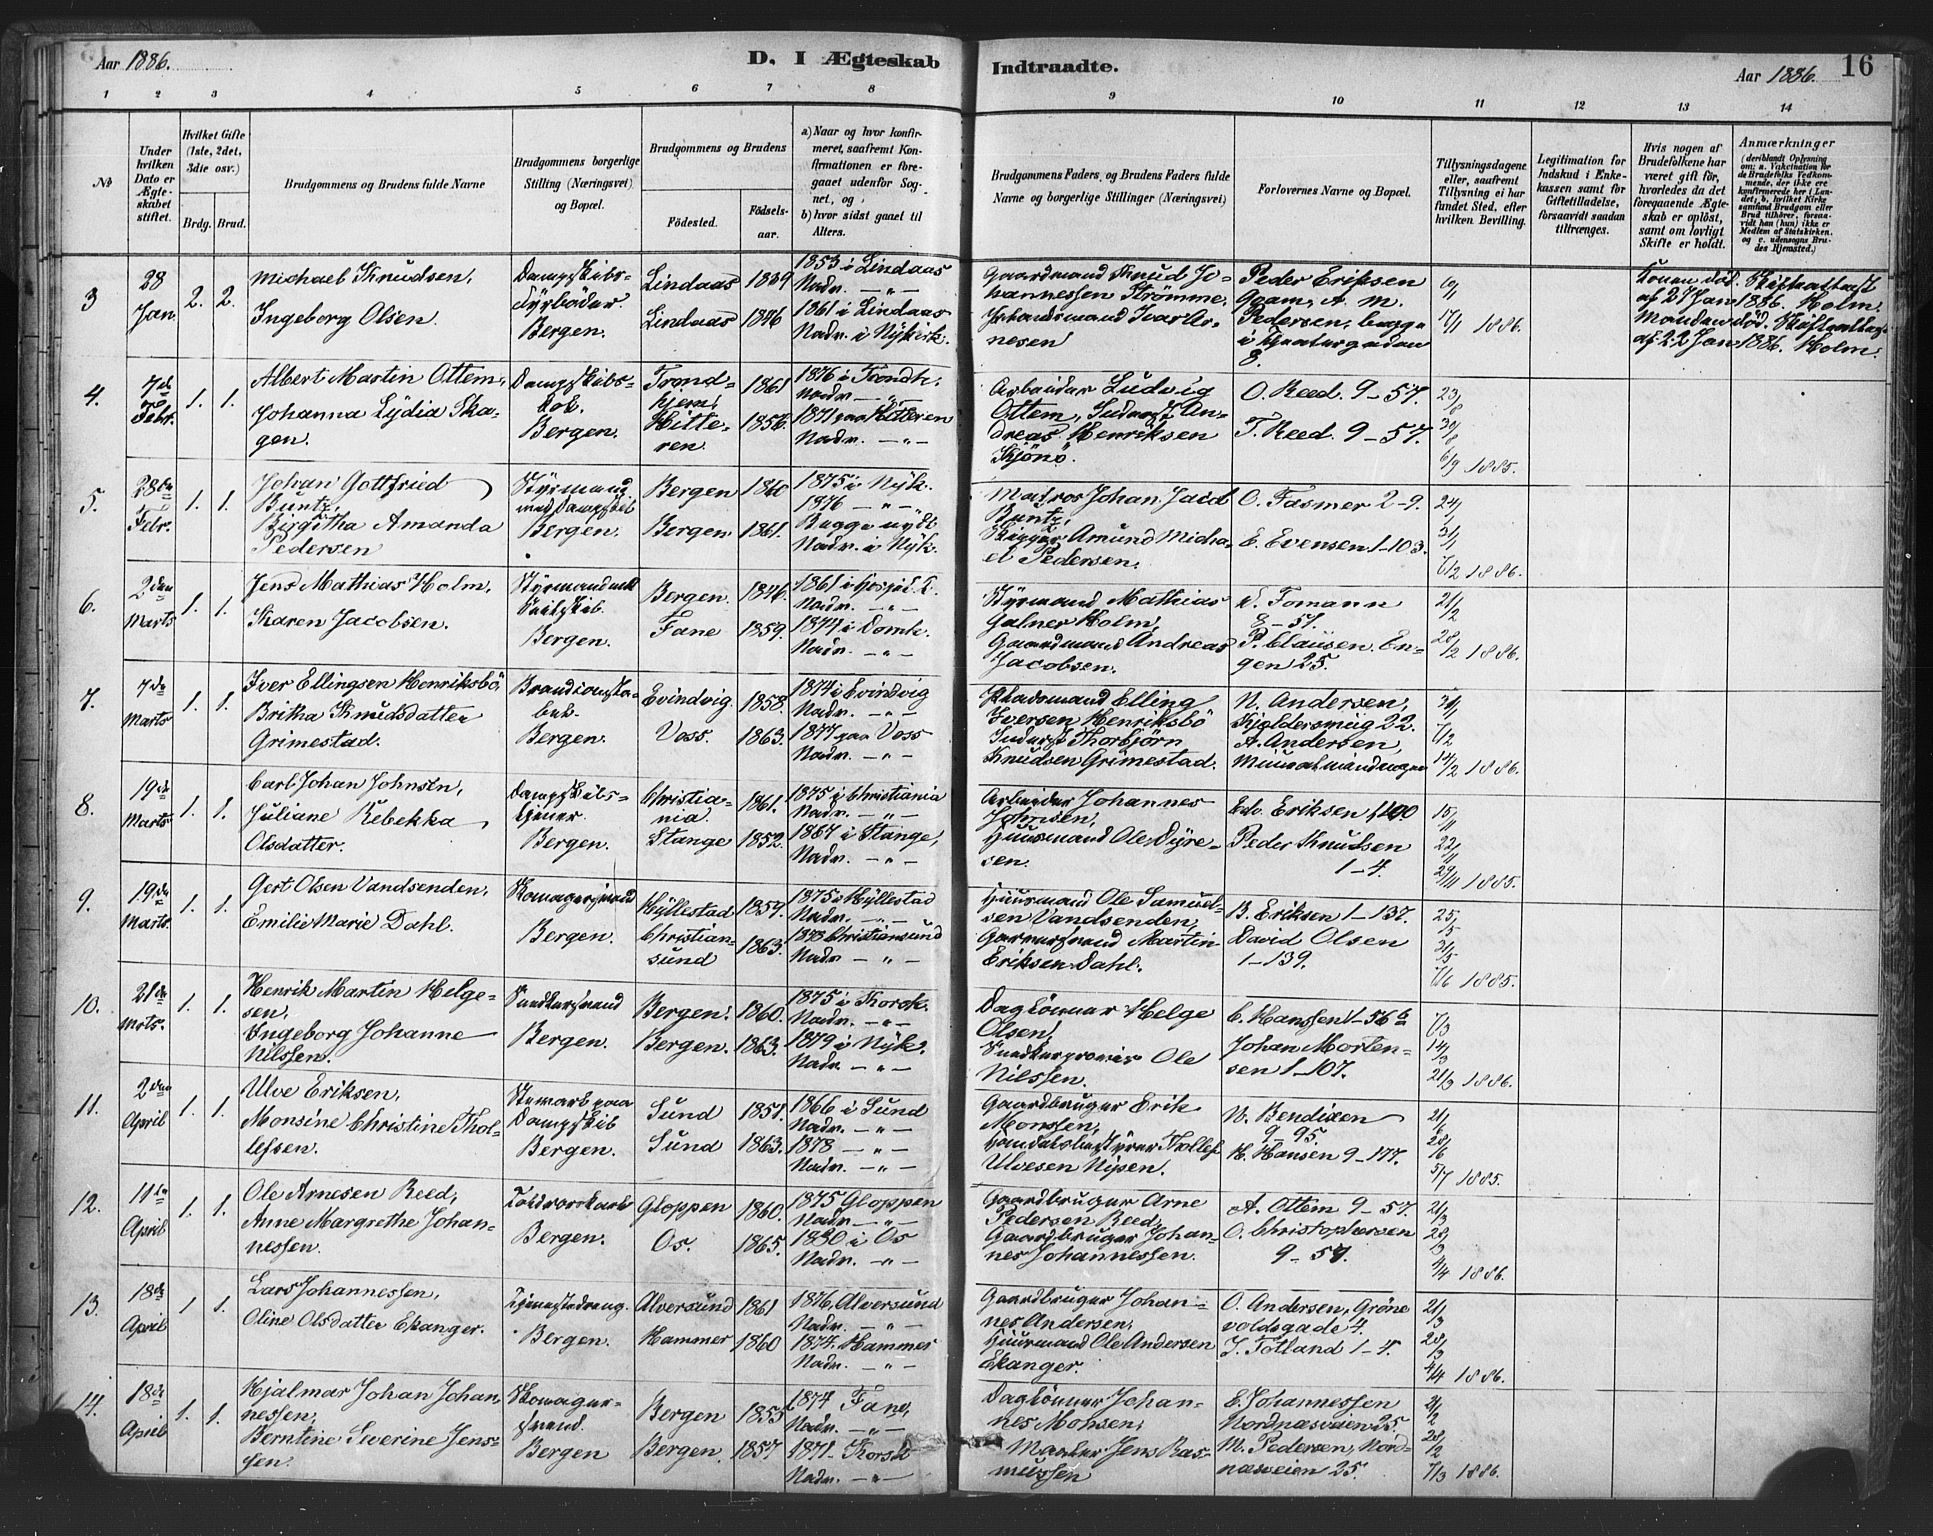 Aar 1886.
D. I Ægteskab Indtraadte.
Aar 1886. 16
1 2 3 4 5 6 7 8 9 10 11 12 13 14
No
Under hvilken Dato er Ægteskabet stiftet.
Hvilket Gifte (1ste, 2det, 3die osv.)
Brdg. Brud.
Brudgommens og Brudens fulde Navne
Brudgommens borgerlige Stilling (Næringsvei) og Bopæl.
Brudgommens og Brudens
Fødested.
Fødselsaar.
a) Naar og hvor konfirmeret, saafremt Konfirmationen er foregaaet udenfor Sognet, og
b) hvor sidst gaaet til Alters.
Brudgommens Faders og Brudens Faders fulde Navne og borgerlige Stillinger (Næringsvei)
Forlovernes Navne og Bopæl.
Tillysningsdagene eller, saafremt Tillysning ei har fundet Sted, efter hvilken Bevilling.
Legitimation for Indskud i Enkekassen samt for Giftetilladelse, forsaavidt saadan tiltrænges.
Hvis nogen af Brudefolkene har været gift før, hvorledes da det foregaaende Ægteskab er opløst, samt om lovligt Skifte er holdt.
Anmærkninger
3 28 Jan 2. 2. Michael Knudsen, Ingeborg Olsen. Dampskibsfyrbøder Bergen. Lindaas 1839 Lindaas 1846 1853 i Lindaas Nadv. — „ — 1861 i Lindaas Nadv. i Nykirk. Gaardmand Knud Johannessen Strømme, Ivar Arnesen Peder Eriksen A. M. Pedersen, begge 10/1 17/1 1886. Konen død. Skifteattest af 27 Jan 1886. Holm. Manden død. Skifteattest af 22 Jan 1886. Holm.
4. 7de Febr. 1. 1. Albert Martin Ottem, Johanna Lydia Skagen. Dampskibs- Bergen. Trondhjem, 1861 Hitteren 1856. 1876 i Trondh. Nadv. — „ — 1871 paa Hitteren Nadv. — „ — Arbeider Ludvig Ottem, Inderst Andreas Henriksen O. Reed 9–57. T. Reed. 9–57. 23/8 30/8 6/9 1885.
5. 28de Febr. 1. 1. Johan Gottfried Buntz, Birgitha Amanda Pedersen Styrmand med Dampskib Bergen. Bergen 1860 Bergen 1861. 1875 i Nyk. 1876 — „ — Begge Nadv. i Nyk. Matros Johan Buntz, Skipper Amund Michael Pedersen. O. Fasmer 2–9. E. Evensen 1–103. 24/1 31/1 7/2 1886.
6. 2den Marts 1. 1. Jens Mathias Holm, Karen Jacobsen. Styrmand med Seilskib Bergen. Bergen. 1846. Fane 1859. 1861 i Nadv. — „ — 1874 i Domk. Nadv. — „ — Styrmand Mathias Holm, Gaardmand Andreas Jacobsen. Fomann 8–51. P. Clausen. Engen 25. 21/2 28/2 1886.
7. 7de Marts 1. 1. Iver Ellingsen Henriksbø, Britha Knudsdatter Grimestad. Bergen. Evindvig 1858. Voss. 1863. 1874 i Evindvig Nadv. — „ — 1877 paa Voss Nadv. — „ — Pladsmand Elling Iversen Henriksbø Inderst Thorbjørn Knudsen Grimestad. N. Andersen, 22. A. Andersen, 7/2 14/2 1886.
8. 19de Marts 1. 1. Carl Johan Johnsen, Juliane Rebekka Olsdatter. Dampskibstjener Bergen. Christiania. 1861. Stange 1852. 1875 i Christiania Nadv. — „ — 1867 i Stange, Nadv. — „ — Arbeider Johannes Johnsen, Huusmand Ole Dyresen. Edv. Eriksen Peder Knudsen 1–4. 15/11 22/11 29/11 1885.
9. 19de Marts. 1. 1. Gert Olsen Vandsenden, Emilie Marie Dahl. Skomagersvend Bergen. Hyllestad 1859. Christiansund 1863. 1875 Hyllestad Nadv. — „ — 1878 Christiansund Nadv. — „ — Huusmand Ole Samuelsen Vandsenden, Garversvend Martin Eriksen Dahl. B. Eriksen 1–137. David Olsen 1–139. 25/5 31/5 7/6 1885.
10. 21de Mrts. 1. 1. Henrik Martin Helgesen, Ingeborg Johanne Nilssen. Bergen. Bergen. 1860. Bergen. 1863. 1875 i Korsk. Nadv. — „ — 1879 i Nyk. Nadv. — „ — Daglønner Helge Olsen, Ole Nilssen. C. Hanssen 1–56 b Johan Mortensen 1–107. 7/3 14/3 21/3 1886.
11. 2den April 1. 1. Ulve Eriksen, Monsine Christine Thollefsen. Stewart paa Dampskib Bergen. Sund 1851. Sund 1863. 1866 i Sund Nadv. — „ — 1878 — „ — Nadv. — „ — Gaardbruger Erik Monssen, Handelsbestyrer Tollef Ulvesen Nysen. N. Bendixen 9–95. H. Hansen 9–177. 21/6 28/6 5/7 1885.
12. 11te April 1. 1. Ole Arnesen Reed, Anne Margrethe Johannessen. Bergen. Gloppen 1860. Os. 1865. 1875 Gloppen Nadv. — „ — 1880 i Os Nadv. — „ — Gaardbruger Arne Pedersen Reed, Gaardbruger Johannes Johannessen. A. Ottem 9–57. O. Christophersen 9–57. 21/3 28/3 4/4 1886.
13. 18de April 1. 1. Lars Johannessen, Oline Olsdatter Ekanger. Tjenestedreng. Bergen. Alversund 1861 Hammer 1860 1876, Alversund Nadv. — „ — 1874. Hammer Nadv. — „ — Gaardbruger Johannes Andersen, Huusmand Ole Andersen Ekanger. O. Andersen, Grønevoldsgade 4. J. Totland 1–4. 21/3 28/3 4/4 1886.
14. 18de April 1. 1. Hjalmar Johan Johannessen, Berntine Severine Jenssen. Skomagersvend. Bergen Bergen 1855 Bergen. 1857 1874 Fane, Nadv. — „ — 1871. Korsk Nadv. — „ — Daglønner Johannes Monsen, Jens Rasmussen E. Johannessen Nordnæsveien 25. M. Pedersen, Nordnæsveien 25. 21/2 28/2 7/3 1886.